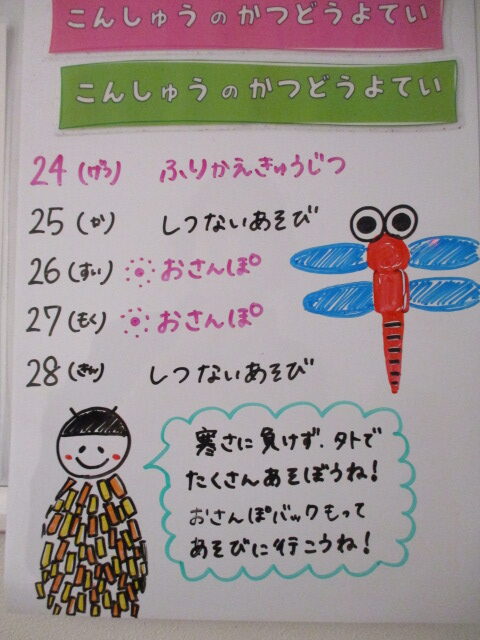 こんしゅうのかつどうよてい
こんしゅうのかつどうよてい
24(げつ) ふりかえきゅうじつ
25(か) しつないあそび
26(すい) おさんぽ
27(もく) おさんぽ
28(きん) しつないあそび
寒さに負けず、外で
たくさんあそぼうね!
おさんぽバックもって
あそびに行こうね!